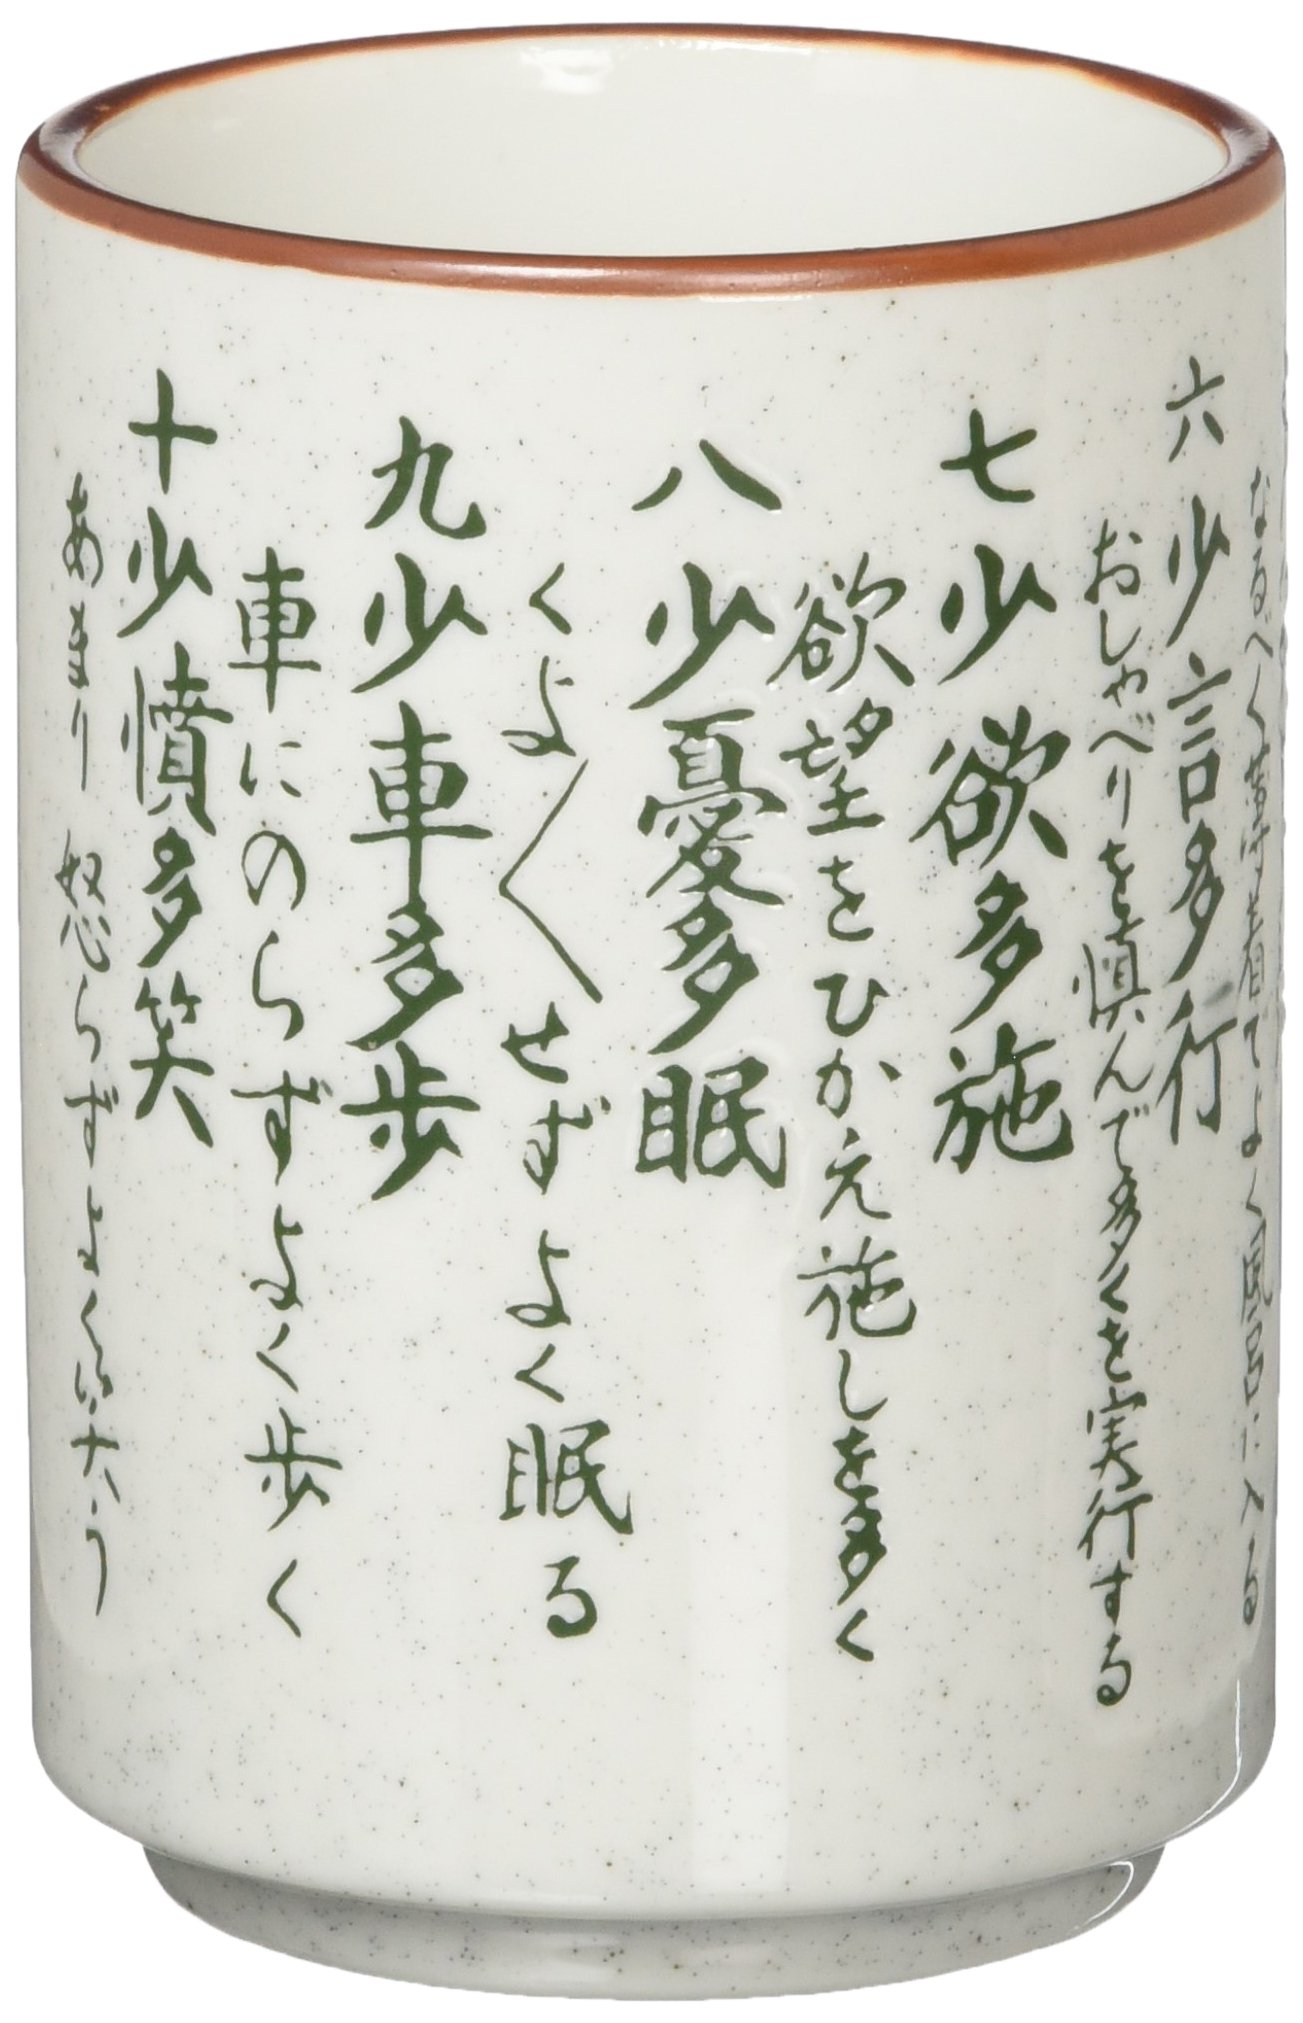 なるべく薄着してよく風呂に入る
六 少言多行
おしゃべりを慎んで多くを実行する
七 少欲多施
欲望をひかえ施しを多く
八 少憂多眠
くよ〳〵せずよく眠る
九 少車多歩
車にのらずよく歩く
十 少憤多笑
あまり怒らずよく笑う